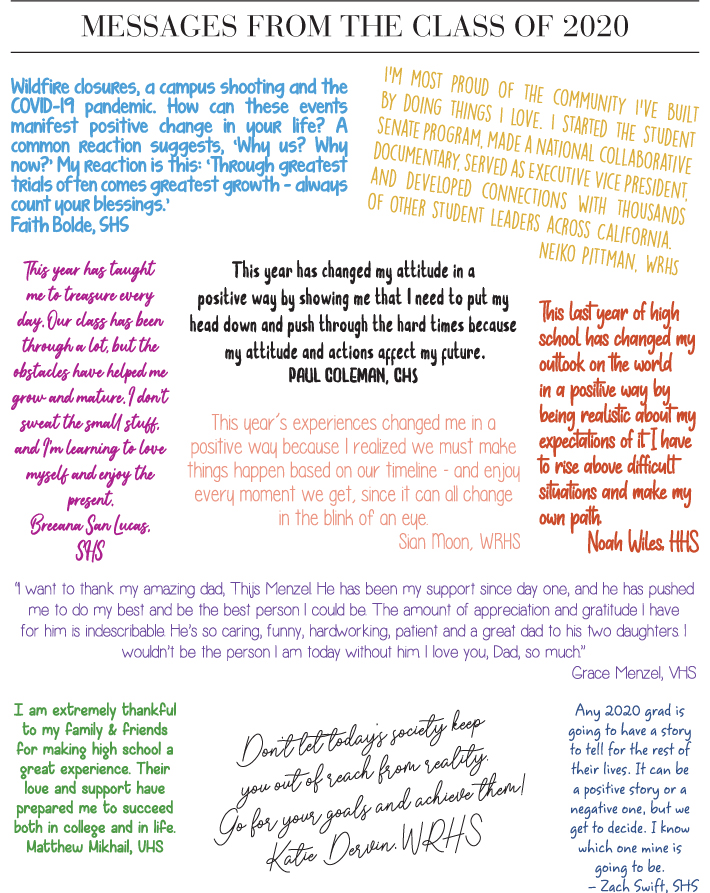 MESSAGES FROM THE CLASS OF 2020
Wildfire closures, a campus shooting and the
COVID-19 pandemic. How can these events
manifest positive change in your life? A
common reaction suggests, 'Why us? Why
now?' My reaction is this: 'Through greatest
trials often comes greatest growth - always
count your blessings.'
Faith Bolde, SHS
I'M MOST PROUD OF THE COMMUNITY I'VE BUILT
BY DOING THINGS I LOVE. I STARTED THE STUDENT
SENATE PROGRAM, MADE A NATIONAL COLLABORATIVE
DOCUMENTARY, SERVED AS EXECUTIVE VICE PRESIDENT,
AND DEVELOPED CONNECTIONS WITH THOUSANDS
OF OTHER STUDENT LEADERS ACROSS CALIFORNIA.
NEIKO PITTMAN, WRHS
This year has taught
me to treasure every
day. Our class has been
through a lot, but the
obstacles have helped me
grow and mature. I don't
sweat the small stuff,
and I'm learning to love
myself and enjoy the
present.
Breeana San Lucas,
SHS
This year has changed my attitude in a
positive way by showing me that I need to put my
head down and push through the hard times because
my attitude and actions affect my future.
PAUL COLEMAN, CHS
This year's experiences changed me in a
positive way because I realized we must make
things happen based on our timeline - and enjoy
every moment we get, since it can all change
in the blink of an eye.
Sian Moon, WRHS
This last year of high
school has changed my
outlook on the world
in a positive way by
being realistic about my
expectations of it. I have
to rise above difficult
situations and make my
own path.
Noah Wiles, HHS
"I want to thank my amazing dad, Thijs Menzel. He has been my support since day one, and he has pushed
me to do my best and be the best person I could be. The amount of appreciation and gratitude I have
for him is indescribable. He's so caring, funny, hardworking, patient and a great dad to his two daughters. I
wouldn't be the person I am today without him. I love you, Dad, so much."
Grace Menzel, VHS
I am extremely thankful
to my family & friends
for making high school a
great experience. Their
love and support have
prepared me to succeed
both in college and in life.
Matthew Mikhail, UHS
Don't let today's society keep
you out of reach from reality.
Go for your goals and achieve them!
Katie Dervin, WRHS
Any 2020 grad is
going to have a story
to tell for the rest of
their lives. It can be
a positive story or a
negative one, but we
get to decide. I know
which one mine is
going to be.
– Zach Swift, SHS